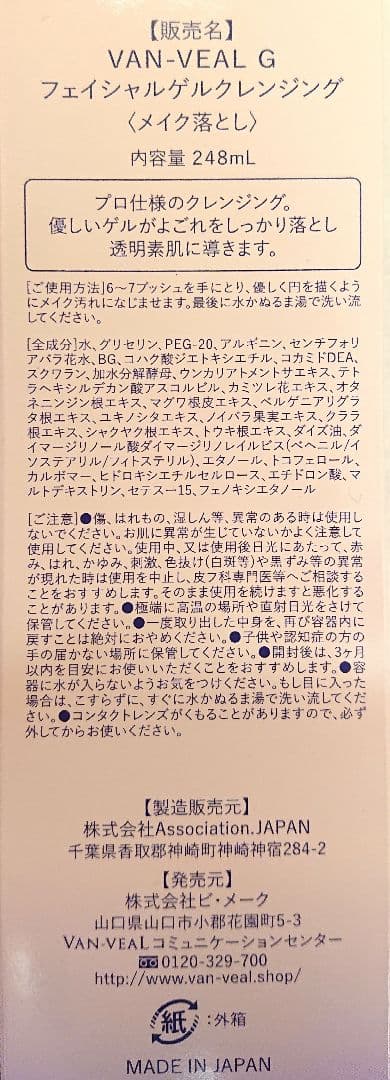 【販売名】
VAN-VEAL G
フェイシャルゲルクレンジング
〈メイク落とし〉
内容量 248mL
プロ仕様のクレンジング。
優しいゲルがよごれをしっかり落とし
透明素肌に導きます。
[ご使用方法]6〜7プッシュを手にとり、優しく円を描くよう
にメイク汚れになじませます。最後に水かぬるま湯で洗い流
してください。
[全成分]水、グリセリン、PEG-20、アルギニン、センチフォリ
アバラ花水、BG、コハク酸ジエトキシエチル、コカミドDEA、
スクワラン、加水分解酵母、ウンカリアトメントサエキス、テト
ラヘキシルデカン酸アスコルビル、カミツレ花エキス、オタ
ネニンジン根エキス、マグワ根皮エキス、ベルゲニアリグラ
タ根エキス、ユキノシタエキス、ノイバラ果実エキス、クララ
根エキス、シャクヤク根エキス、トウキ根エキス、ダイズ油、ダ
イマージリノール酸ダイマージリノレイルビス(ベヘニル/イ
ソステアリル/フィトステリル)、エタノール、トコフェロール、
カルボマー、ヒドロキシエチルセルロース、エチドロン酸、マ
ルトデキストリン、セテス-15、フェノキシエタノール
[ご注意]●傷、はれもの、湿しん等、異常のある時は使用し
ないでください。お肌に異常が生じていないかよく注意して
使用してください。使用中、又は使用後日光にあたって、赤
み、はれ、かゆみ、刺激、色抜け(白斑等)や黒ずみ等の異常
が現れた時は使用を中止し、皮フ科専門医等へご相談する
ことをおすすめします。そのまま使用を続けますと悪化する
ことがあります。●極端に高温の場所や直射日光をさけて
保管してください。●一度取り出した中身を、再び容器内に
戻すことは絶対におやめください。●子供や認知症の方の
手の届かない場所に保管してください。●開封後は、3ヶ月
以内を目安にお使いいただくことをおすすめします。●容
器に水が入らないようお気をつけください。もし目に入った
場合は、こすらずに、すぐに水かぬるま湯で洗い流してくださ
い。●コンタクトレンズがくもることがありますので、必ず
外してからお使いください。
【製造販売元】
株式会社Association.JAPAN
千葉県香取郡神崎町神崎神宿284-2
【発売元】
株式会社ビ・メーク
山口県山口市小郡花園町5-3
VAN-VEALコミュニケーションセンター
0120-329-700
http://www.van-veal.shop/
紙:外箱
MADE IN JAPAN